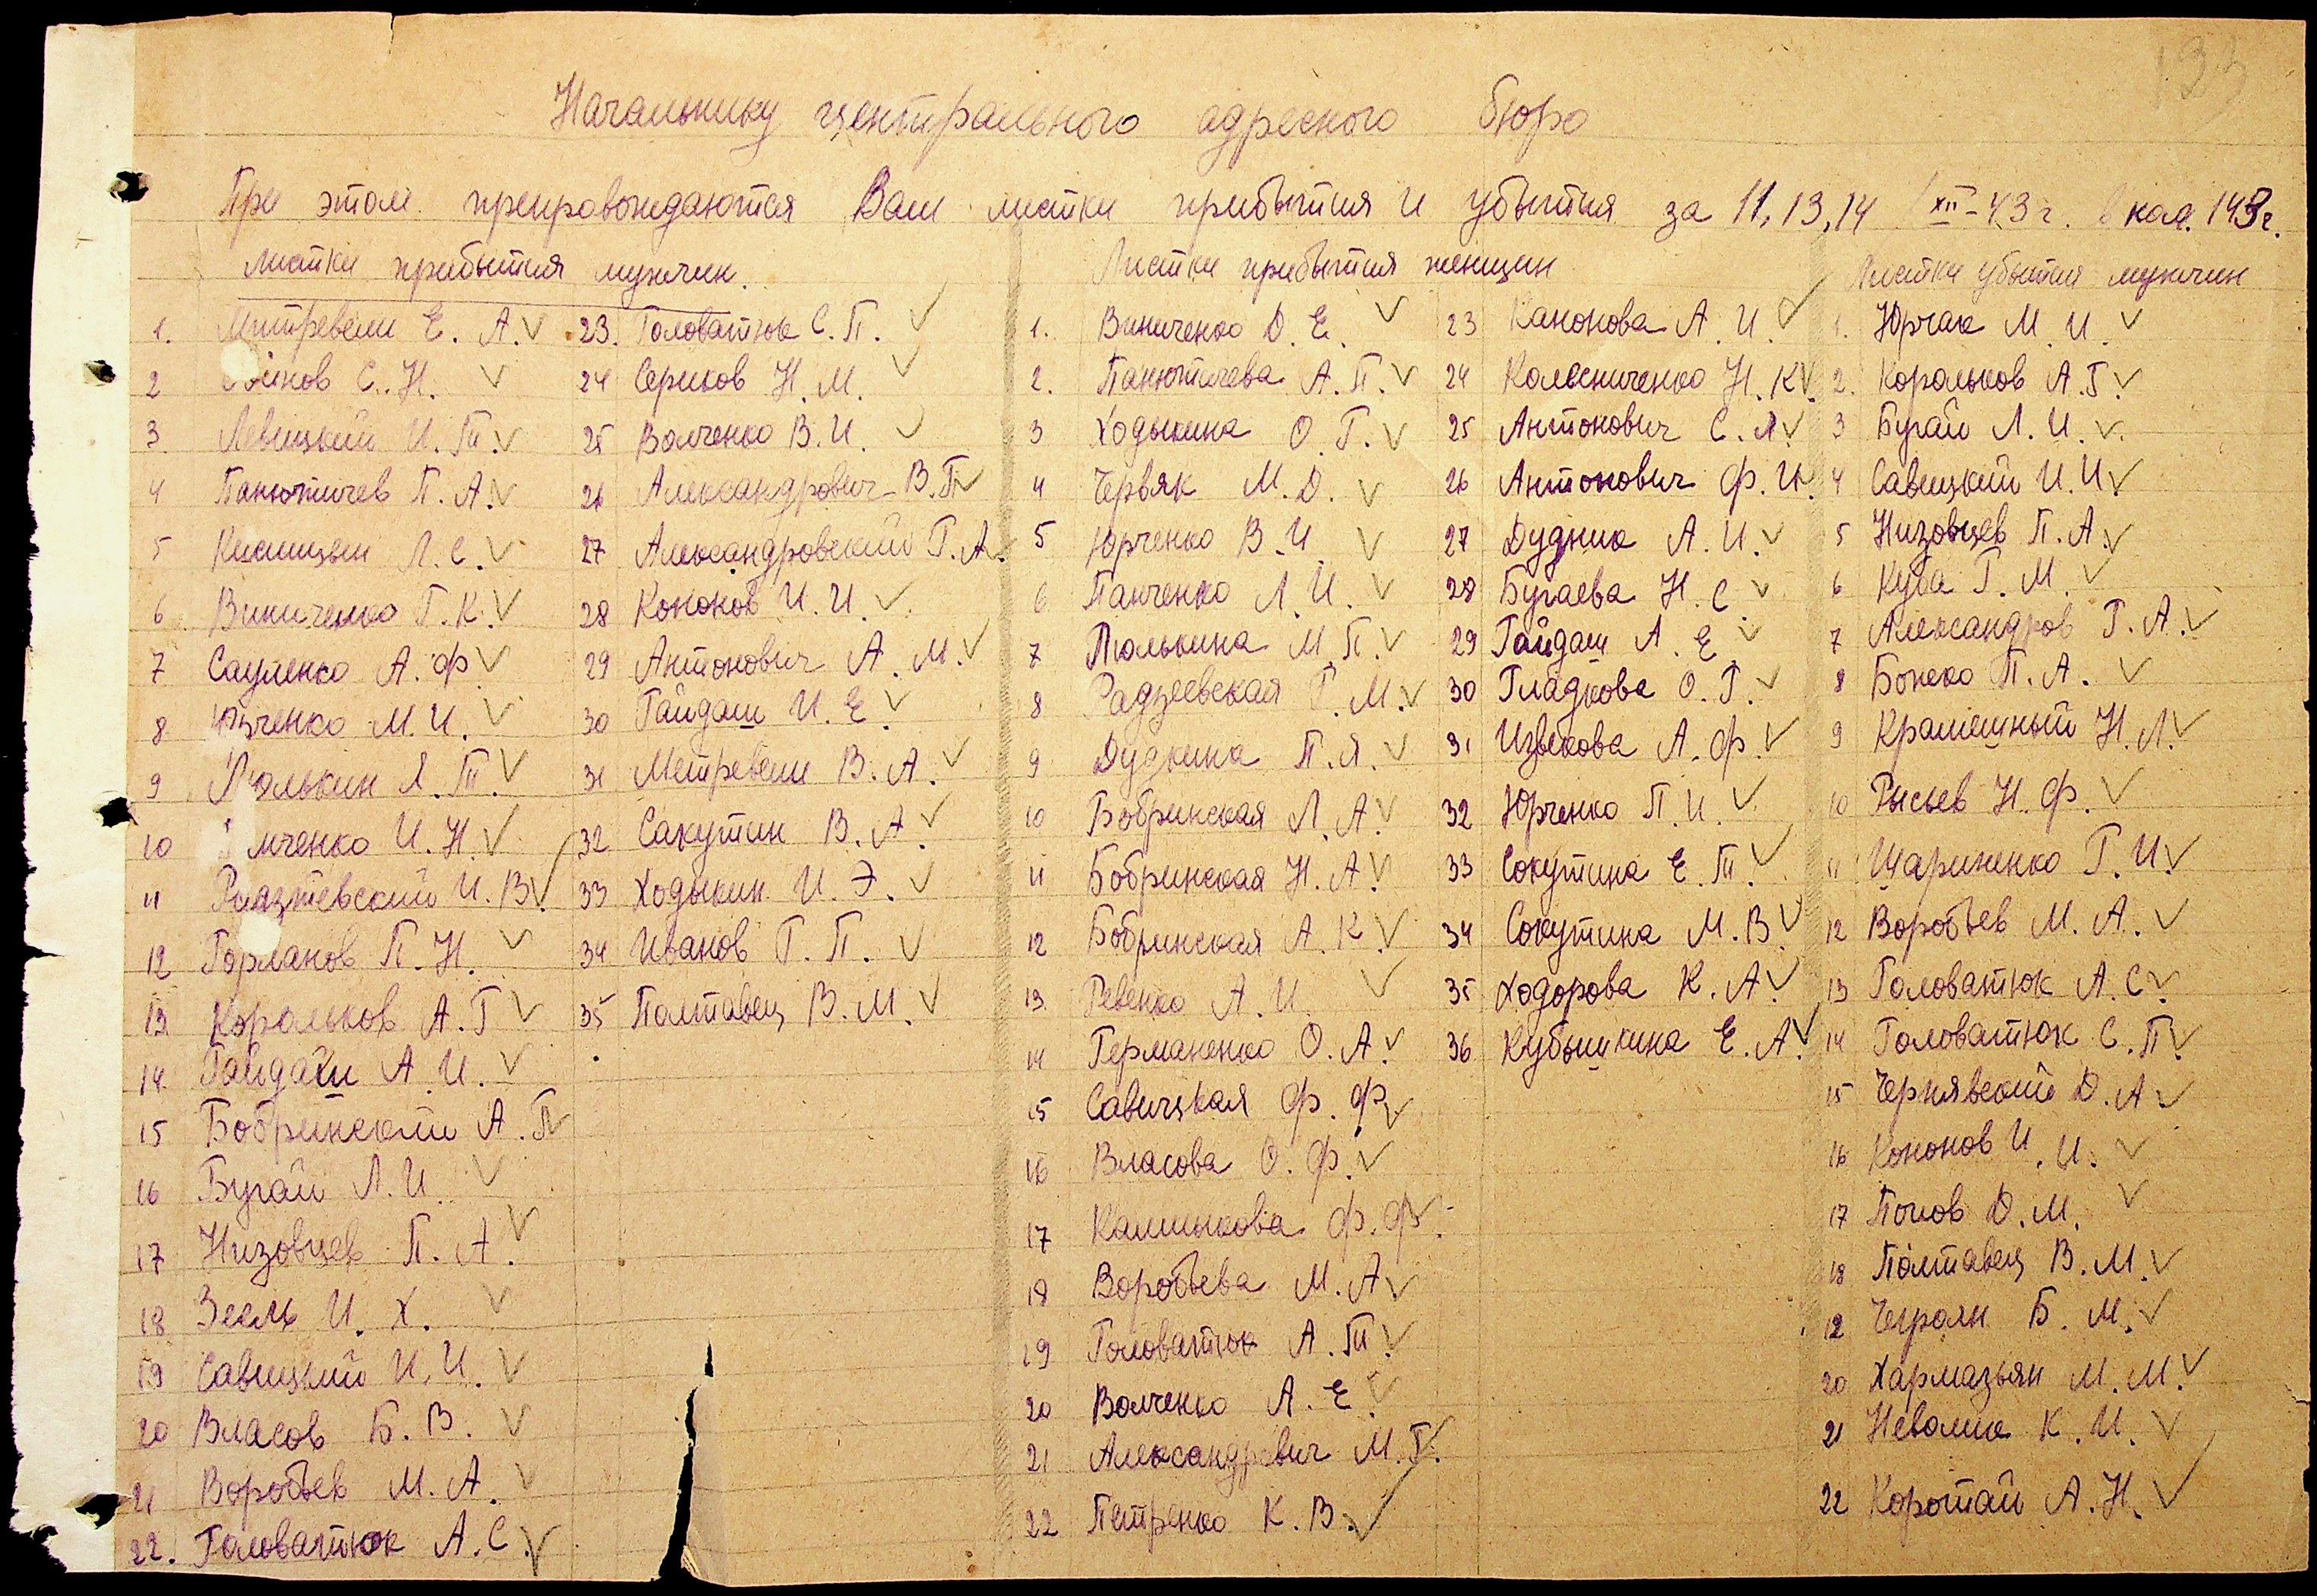 Начальнику центрального адресного бюро
При этом препровождаются Вам листки прибытия и убытия за 11, 13, 14 /XII-43 г. в кол. 143г.
Листки прибытия мужчин.
1. Митревели Е. А. V
2 С. Н. V
3. Левицкий И. Т. V
4 Панютичев П. А. V
5 Л. С. V
6 Виниченко Г. К. V
7 Сауленко А. Ф V
8 М. И. V
9 Люлькин Я. Т. V
10 И. Н. V
11 И. В. V
12 Горланов П. Н. V
13 Корольков А. Г V
14 Гайдаш А. И. V
15 Бобринский А. П V
16 Бугай Л. И. V
17 Низовцев П. А. V
18 Зеель И. Х. V
19 Савицкий И. И. V
20 Власов Б. В. V
21 Воробьев М. А. V
22. Головатюк А. С. V
23. Головатюк С. П. V
24 Сериков Н. М. V
25 Волченко В. И. V
26 Александрович В. П. V
27 Александровский Г. А. V
28 Кононов И. И. V
29 Антонович А. М. V
30 Гайдаш И. Е. V
31 Метревели В. А. V
32 Сакутин В. А. V
33 Ходыкин И. Э. V
34 Иванов Г. П. V
35 Полтавец В. М. V
Листки прибытия женщин
1. Виниченко Д. Е. V
2. Панютичева А. П. V
3 Ходыкина О. Г. V
4 Червяк М. Д. V
5 Юрченко В. И. V
6 Панченко Л. И. V
7 Люлькина М. П. V
8 Радзеевская Г. М. V
9 Дудкина П. Я. V
10 Бобринская Л. А. V
11 Бобринская Н. А. V
12 Бобринская А. К. V
13 Ревенко А. И. V
14 Германенко О. А. V
15 Савицкая Ф. Ф. V
16 Власова О. Ф. V
17 Калмыкова Ф. Ф. V
18 Воробьева М. А. V
19 Головатюк А. Т. V
20 Волченко А. Е. V
21 Александрович М. Г. V
22 Петренко К. В. V
23 Канонова А. И. V
24 Колесниченко Н. К. V
25 Антонович С. Л. V
26 Антонович Ф. И. V
27 Дудник А. И. V
28 Бугаева Н. С. V
29 Гайдаш А. Е. V
30 Гладкова О. Г. V
31 Извекова А. Ф. V
32 Юрченко П. И. V
33 Сокутина Е. Т. V
34 Сокутина М. В. V
35 Ходорова К. А. V
36 Кубышкина Е. А. V
Листки убытия мужчин
1. Юрчак М. И. V
2. Корольков А. Г. V
3 Бугай Л. И. V
4 Савицкий И. И. V
5 Низовцев П. А. V
6 Куба Г. М. V
7 Александров Г. А. V
8 Бонеко П. А. V
9 Крамешный Н. Л. V
10 Рысьев Н. Ф. V
11 Шариненко Г. И. V
12 Воробьев М. А. V
13 Головатюк А. С. V
14 Головатюк С. П. V
15 Чернявский Д. А. V
16 Кононов И. И. V
17 Попов Д. М. V
18 Полтавец В. М. V
19 Б. М. V
20 Хармазьян М. М. V
21 К. И. V
22 Коротай А. Н. V